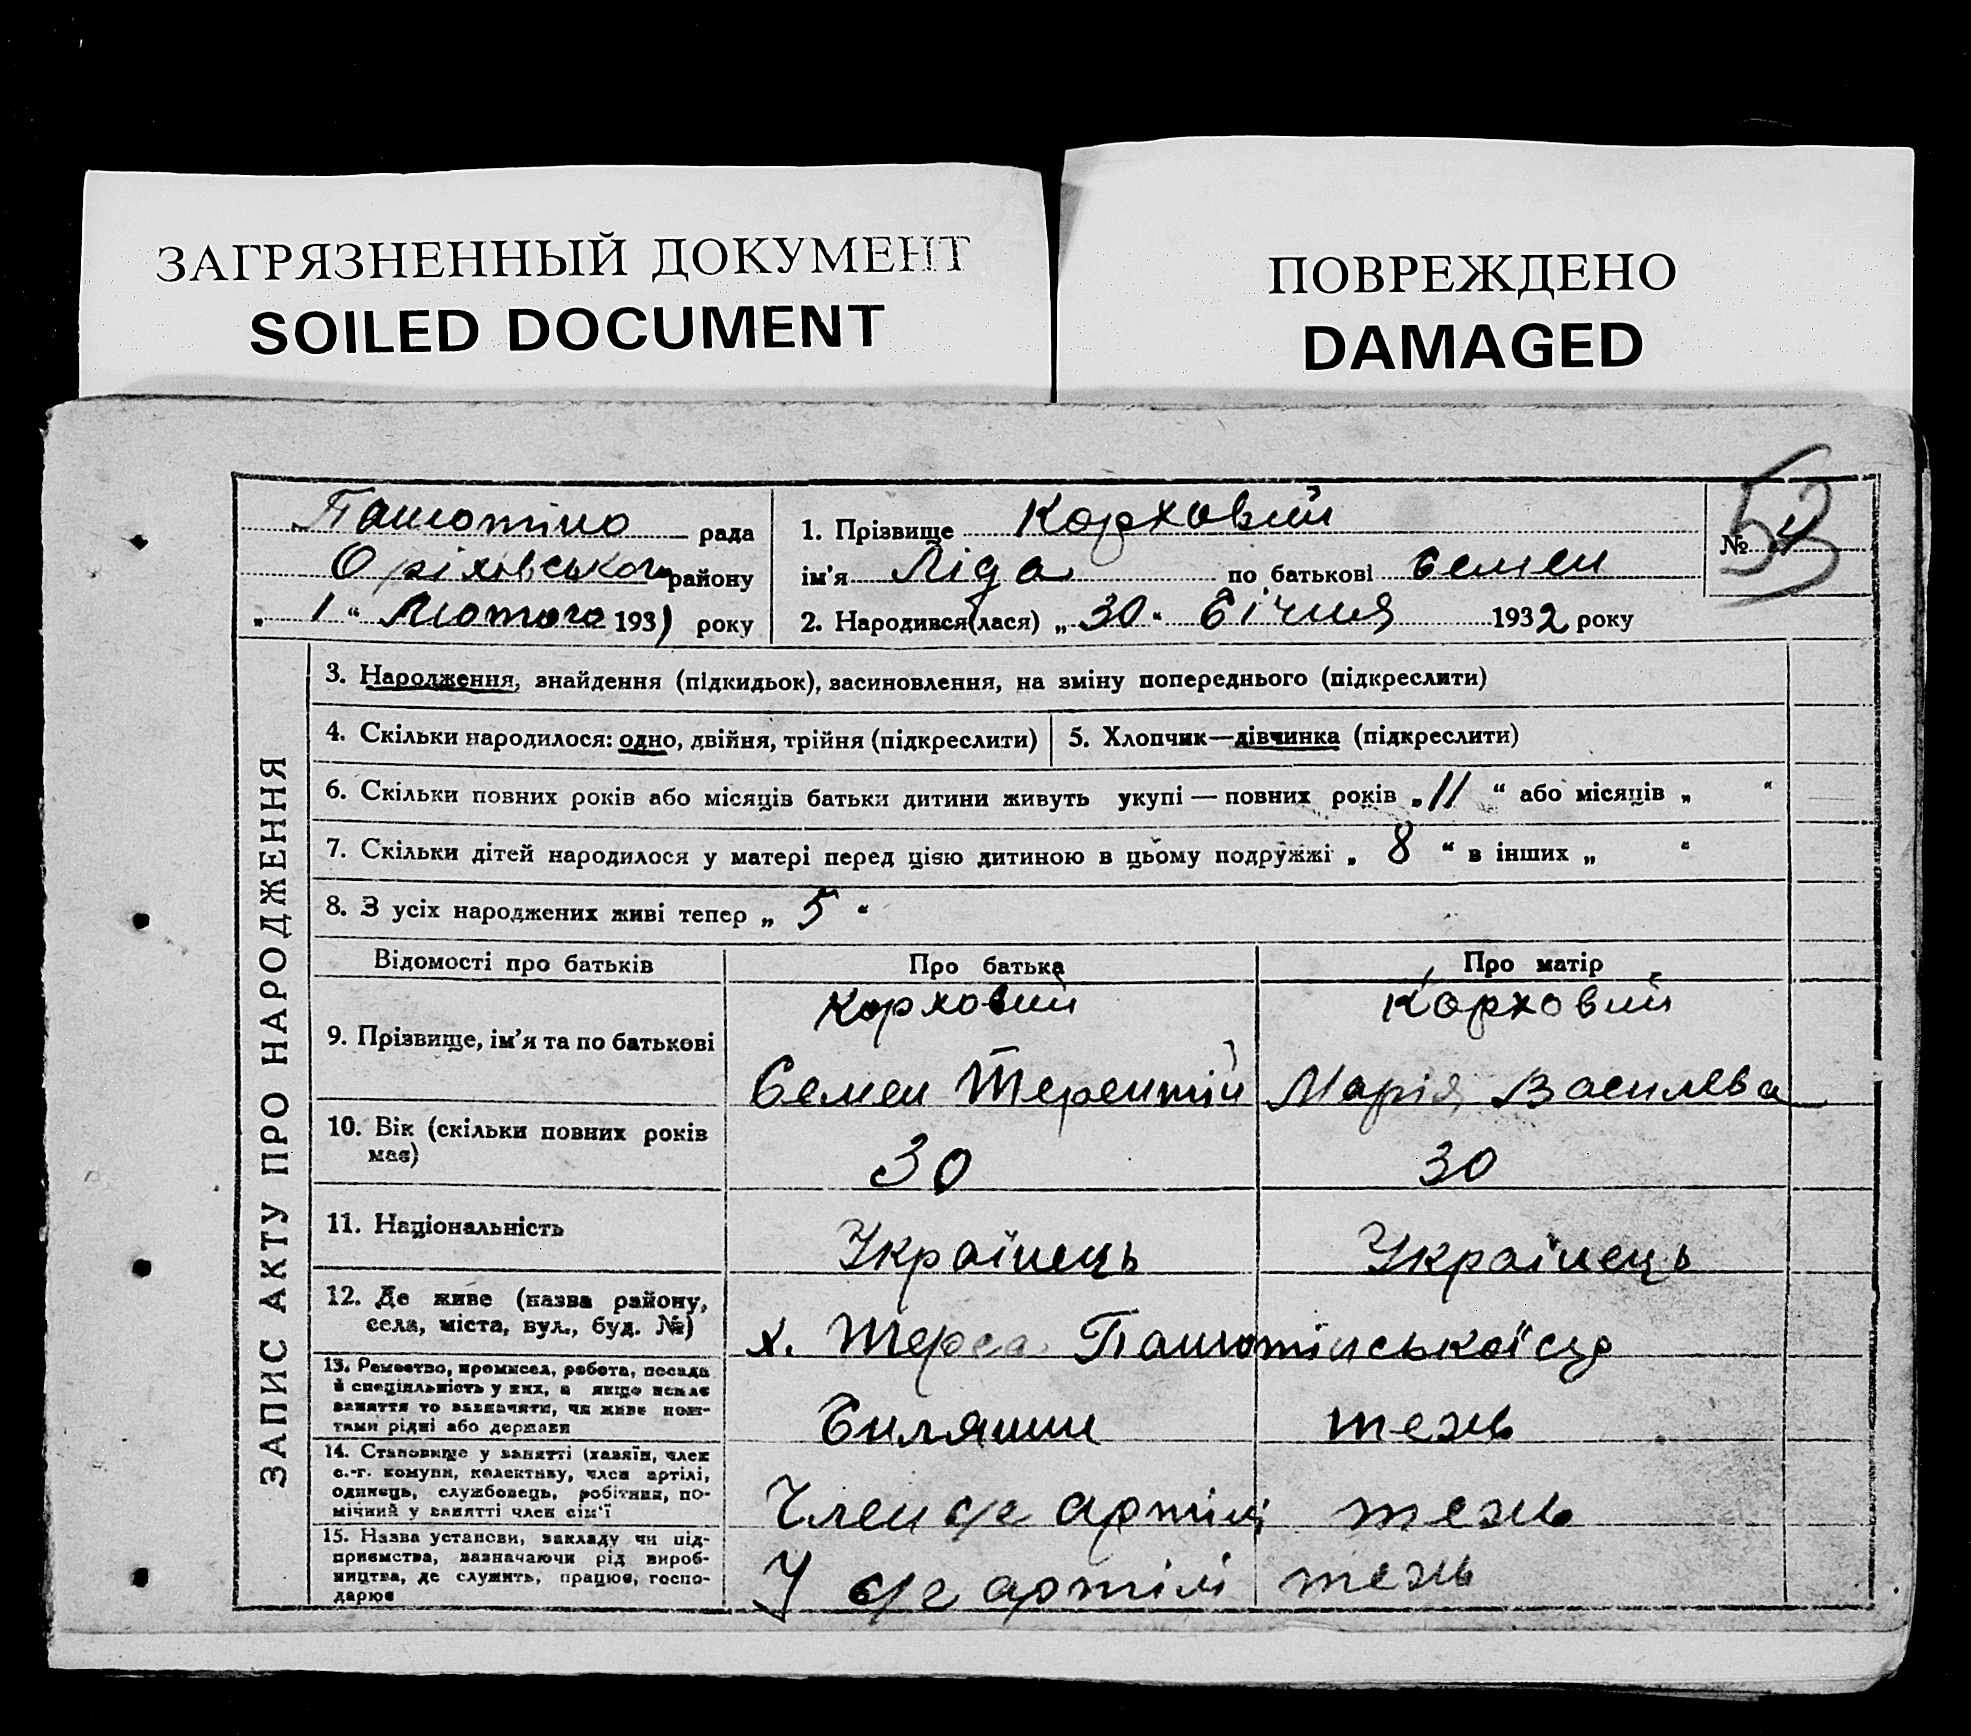 ЗАГРЯЗНЕННЫЙ ДОКУМЕНТ
SOILED DOCUMENT
ПОВРЕЖДЕНО
DAMAGED
рада
Оріхівського району
„ 1 “ Лютого 193 року
1. Прізвище Корховий
ім’я Ліда по батькові Семен
2. Народився(лася) „ 30 “ Січня 1932 року
№ 4
53
ЗАПИС АКТУ ПРО НАРОДЖЕННЯ
3. Народження, знайдення (підкидьок), засиновлення, на зміну попереднього (підкреслити)
4. Скільки народилося: одно, двійня, трійня (підкреслити)
5. Хлопчик—дівчинка (підкреслити)
6. Скільки повних років або місяців батьки дитини живуть укупі — повних років „ 11 “ або місяців „ “
7. Скільки дітей народилося у матері перед цією дитиною в цьому подружжі „ 8 “ в інших „ “
8. З усіх народжених живі тепер „ 5 “
Відомості про батьків
Про батька
Про матір
9. Прізвище, ім’я та по батькові
Корховий
Семен Терентій
Корховий
Марія Василева
10. Вік (скільки повних років
має)
30
30
11. Національність
Українець
Українець
12. Де живе (назва району,
села, міста, вул., буд. №)
х. Терса
13. Ремество, промисел, робота, посада
й спеціяльність у них, а якщо немає
заняття то зазначити, чи живе кош-
тами рідні або держави
тежь
14. Становище у занятті (хазяїн, член
с.-г. комуни, колективу, член артілі,
одинець, службовець, робітник, по-
мічний у занятті член сім’ї
Член с/г артілі
тежь
15. Назва установи, закладу чи під-
приємства, зазначаючи рід вироб-
ництва, де служить, працює, госпо-
дарює
У с/г артілі
тежь